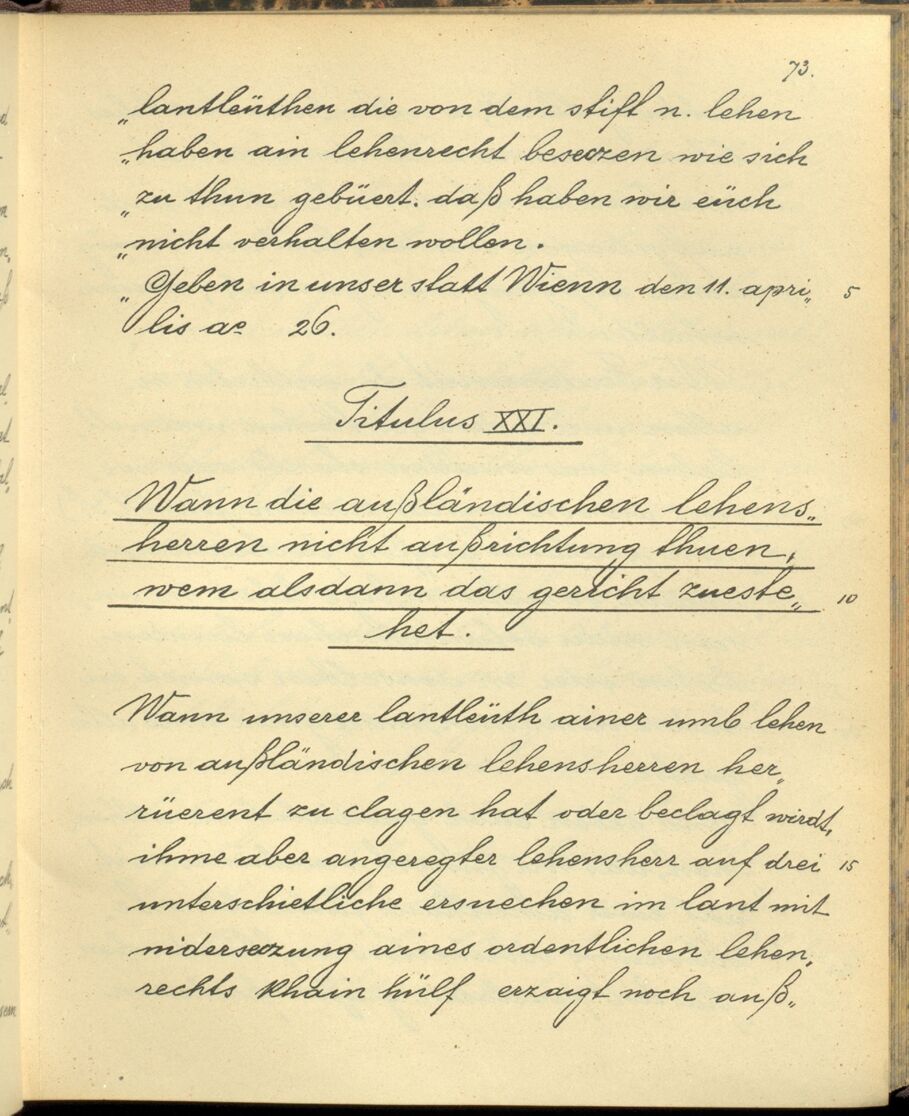 73.
„lantleüthen die von dem stift n. lehen
„haben ain lehenrecht besezen wie sich
„zu thun gebüert. daß haben wir eüch
„nicht verhalten wollen.
„Geben in unser statt Wienn den 11. apri„ 5
lis ao 26.
Titulus XXI.
Wann die außländischen lehens„
herren nicht außrichtung thuen,
wem alsdann das gericht zueste„ 10
het.
Wann unserer lantleüth ainer umb lehen
von außländischen lehensherren her„
rüerent zu clagen hat oder beclagt wirdt,
ihme aber angeregter lehensherr auf drei 15
unterschietliche ersuechen im lant mit
nidersezung aines ordentlichen lehen„
rechts khain hülf erzaigt noch auß„